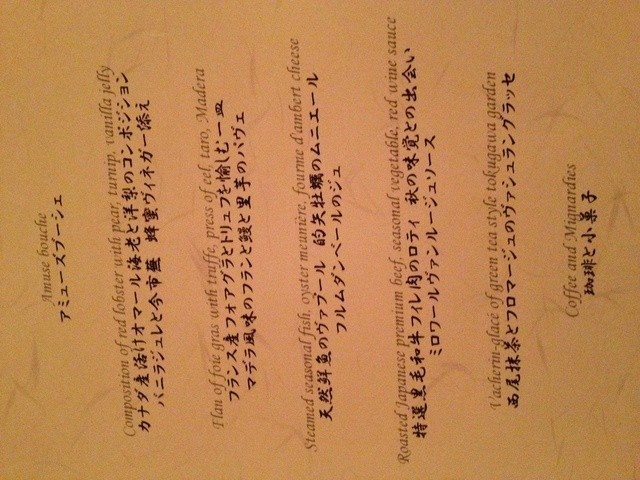 Amuse bouche
アミューズブーシェ
Composition of red lobster with pear, turnip, vanilla jelly
カナダ産活けオマール海老と洋梨のコンポジション
バニラジュレと今市蕪 蜂蜜ヴィネガー添え
Flau of foie gras with truffe, press of eel, taro, Madera
フランス産フォアグラとトリュフを愉しむ一皿
マデラ風味のフランと鰻と里芋のパヴェ
Steamed seasonal fish, oyster meunière, fourme d'ambert cheese
天然鮮魚のヴァプール 的矢牡蠣のムニエール
フルムダンベールのジュ
Roasted Japanese premium beef, seasonal vegetable, red wine sauce
特選黒毛和牛フィレ肉のロティ 秋の味覚との出会い
ミロワールヴァンルージュソース
Vacherin-glacé of green tea style tokugawa garden
西尾抹茶とフロマージュのヴァシュラングラッセ
Coffee and Mignardies
珈琲と小菓子